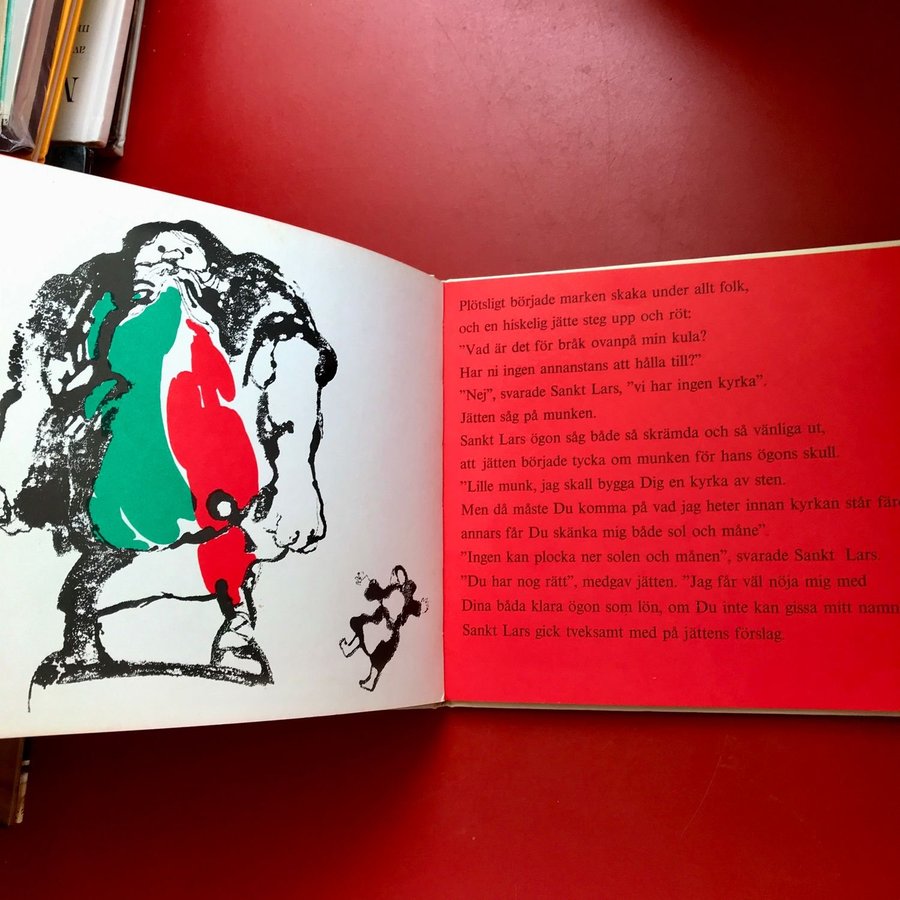 Plötsligt började marken skaka under allt folk,
och en hiskelig jätte steg upp och röt:
”Vad är det för bråk ovanpå min kula?
Har ni ingen annanstans att hålla till?”
”Nej”, svarade Sankt Lars, ”vi har ingen kyrka”.
Jätten såg på munken.
Sankt Lars ögon såg både så skrämda och så vänliga ut,
att jätten började tycka om munken för hans ögons skull.
”Lille munk, jag skall bygga Dig en kyrka av sten.
Men då måste Du komma på vad jag heter innan kyrkan står
annars får Du skänka mig både sol och måne”.
”Ingen kan plocka ner solen och månen”, svarade Sankt Lars.
”Du har nog rätt”, medgav jätten. ”Jag får väl nöja mig med
Dina båda klara ögon som lön, om Du inte kan gissa mitt namn
Sankt Lars gick tveksamt med på jättens förslag.